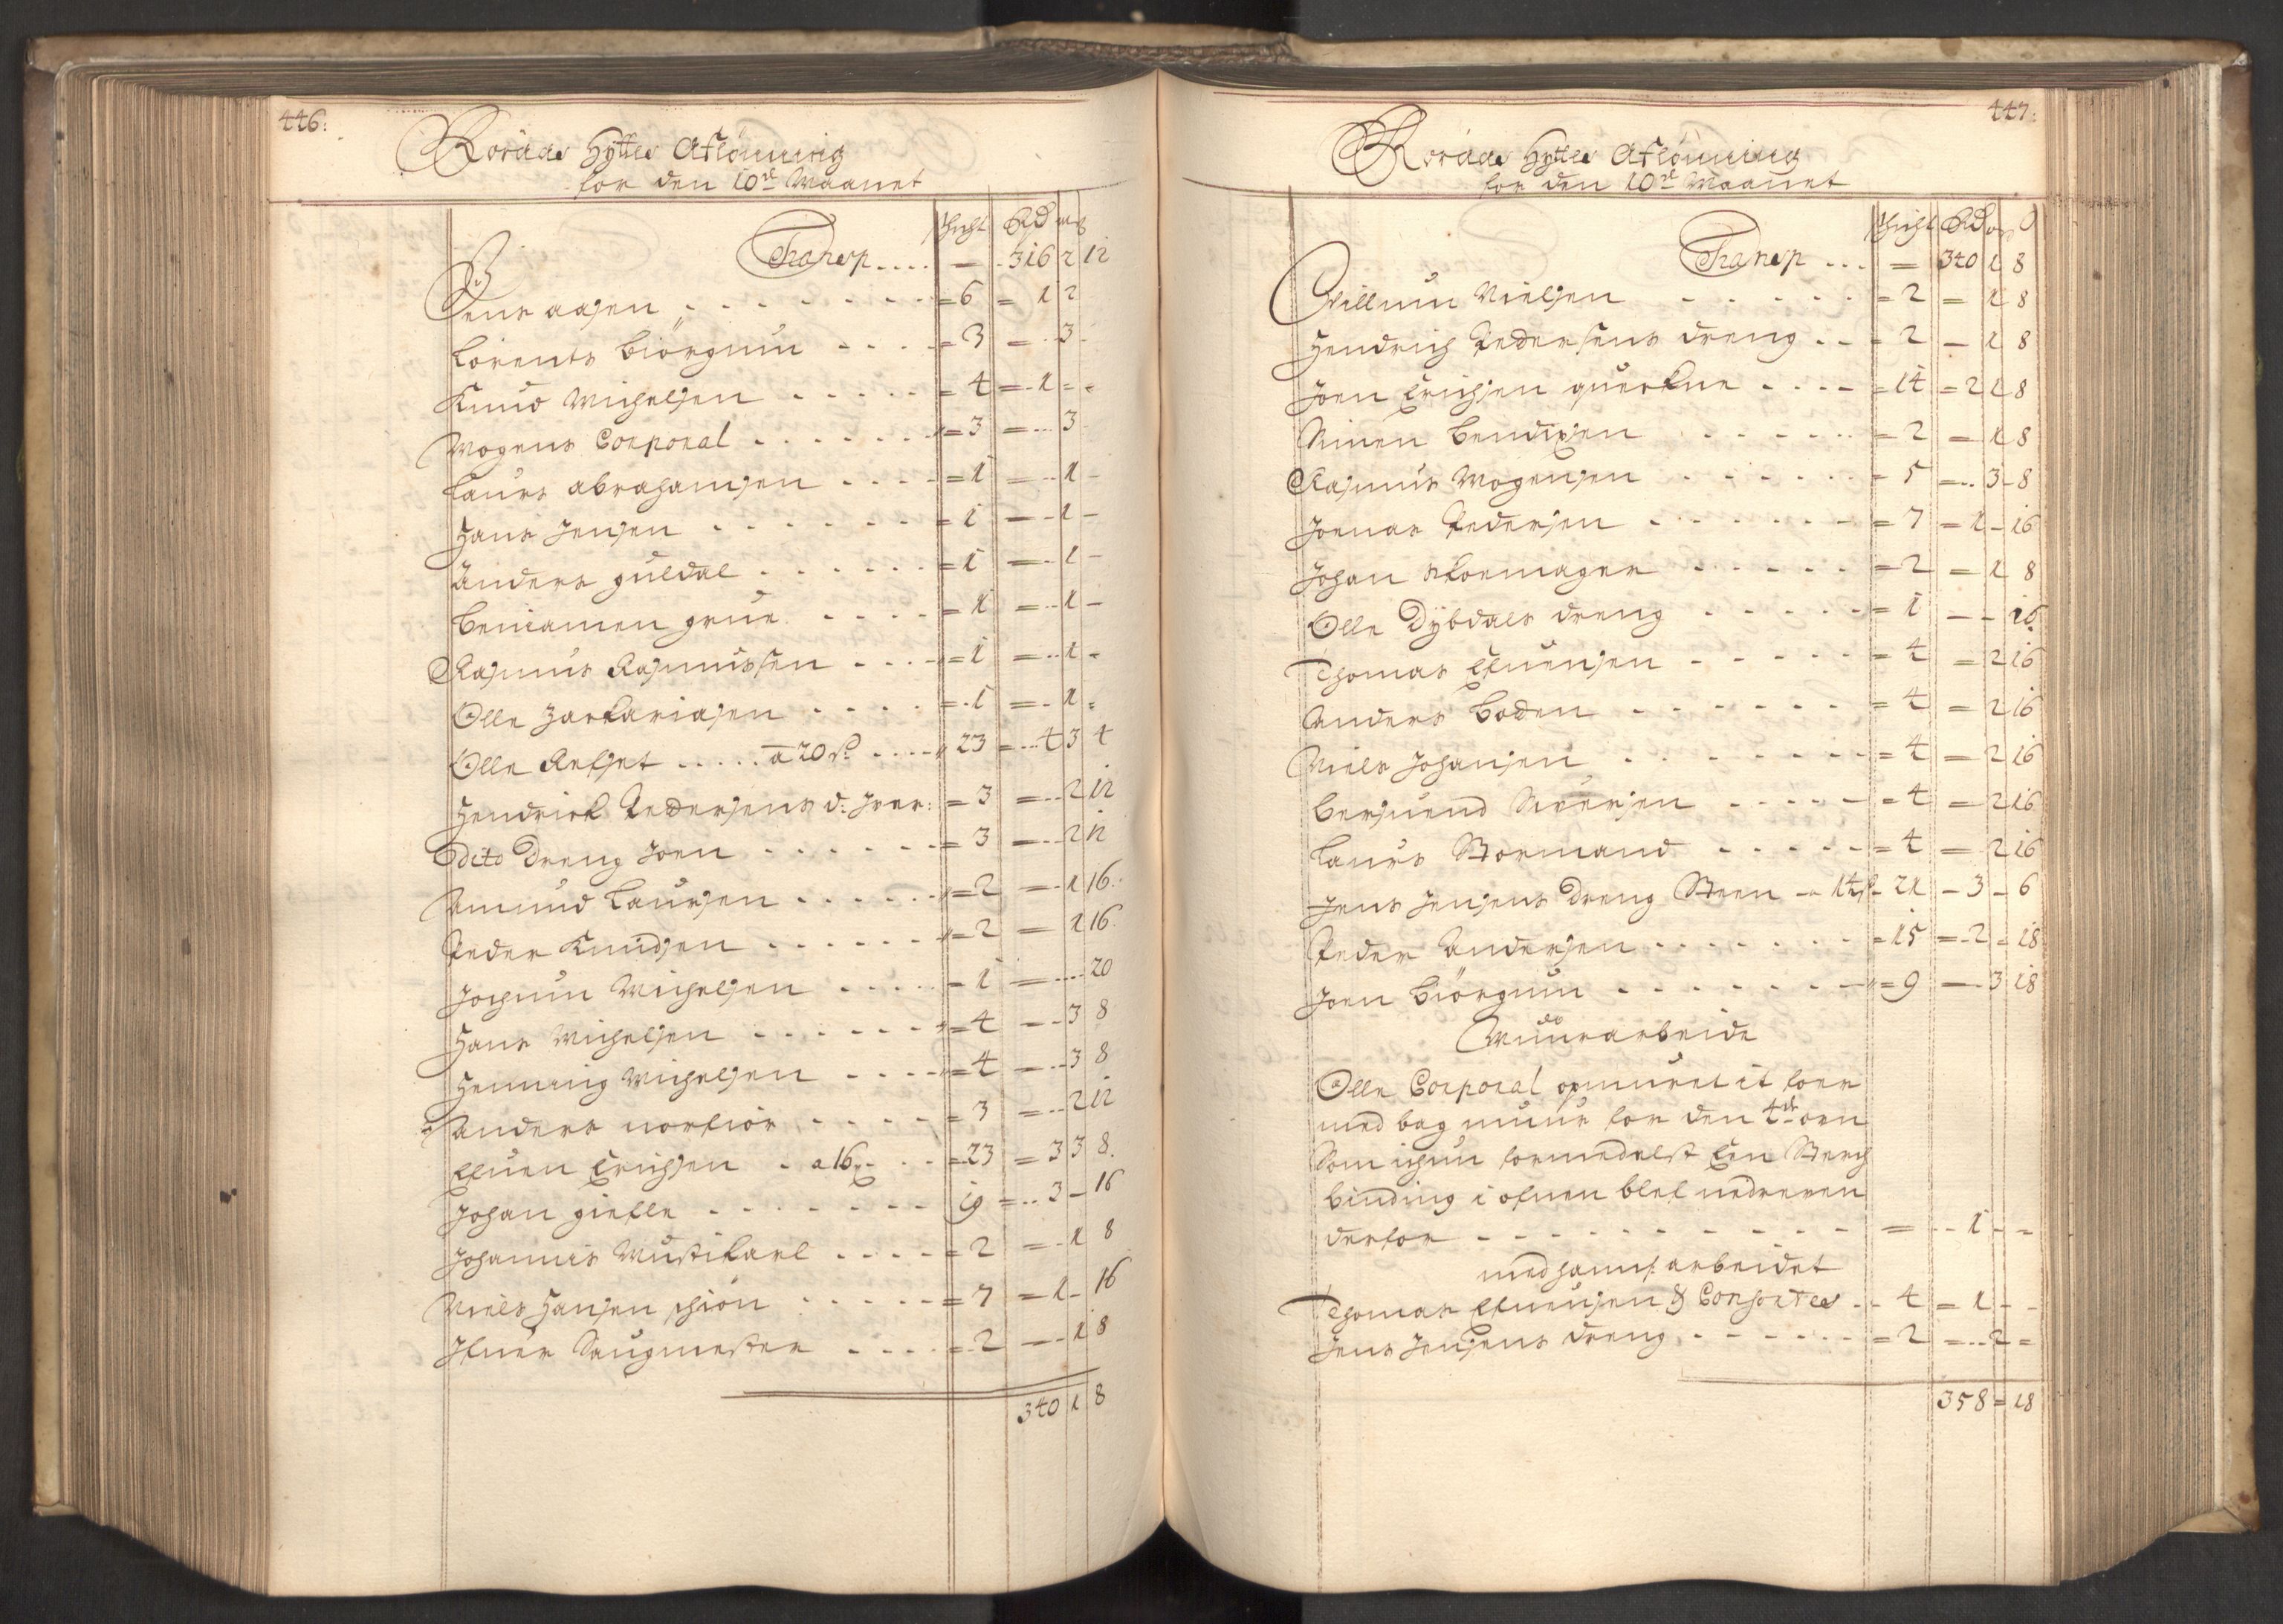 446:
Roraas Hytte Aflönning
for den 10de Maanet
Schicht Rd m ß
Transp .... — 316 2 12
Jens aasen = 6 = 1 2
Lorents Biörgum = 3 = 3
Knud Michelsen = 4 = 1 = =
Mogens Corporal = 3 = 3
Laurs abrahamsen = 1 = 1 -
Hans Jensen = 1 — 1 -
Anders guldal = 1 = 1 -
Beniamen grue = 1 = 1 -
Rasmus Rasmussen = 1 = 1 -
Olle Zackariasen = 1 = 1 =
Olle Refset a 20 ß 23 = 4 3 4
Hendrick Pedersens d: Iver: = 3 = 2 12
Dito Dreng Joen = 3 = 2 12
Amund Laursen = 2 = 1 16
Peder Knudsen = 2 = 1 16
Jochum Michelsen = 1 = 20
Hans Michelsen = 4 — 3 8
Henning Michelsen = 4 = 3 8
Anders norfior = 3 = 2 12
Efuen Erichsen a 16 = 23 = 3 3 8
Johan giefle 19 = 3 - 16
Johannis Mustikarl = 2 = 1 8
Niels Hansen schiön = 7 = 1 - 16
Ifuer Saugmester = 2 = 1 8
340 1 8
447:
Roraas Hytte Aflönning
for den 10de Maanet
Schicht Rd m ß
Transp ... = 340 1 8
Villum Nielsen = 2 = 1 8
Hendrich Pedersens dreng = 2 — 1 8
Joen Erichsen querkne = 14 = 2 1 8
Simen Bendixen = 2 = 1 8
Rasmus Mogensen = 5 = 3 - 8
Jonas Pedersen = 7 = 1 - 16
Johan skomager = 2 = 1 8
Olle Dybdals dreng = 1 — 16
Thomas Efuensen = 4 = 2 16
Anders Boden = 4 = 2 16
Niels Johansen = 4 = 2 16
Bersuend Siversen = 4 = 2 16
Laurs Stormand = 4 = 2 16
Jens Jensens Dreng Steen a 14 ß 21 — 3 — 6
Peder Andersen = 15 = 2 = 18
Joen Biörgum = 9 — 3 18
Muurarbeide
Olle Corporal opmuret it foer
med bag muur for den 4de oen
Som ighen formedelst Een Sterch
binding i ofnen blef nedreven
derfor = 1 - =
med hannß arbeidet
Thomas Efuensen & Consortes 4 = 1 - -
Jens Jensens dreng = 2 = 2 =
358 = 18